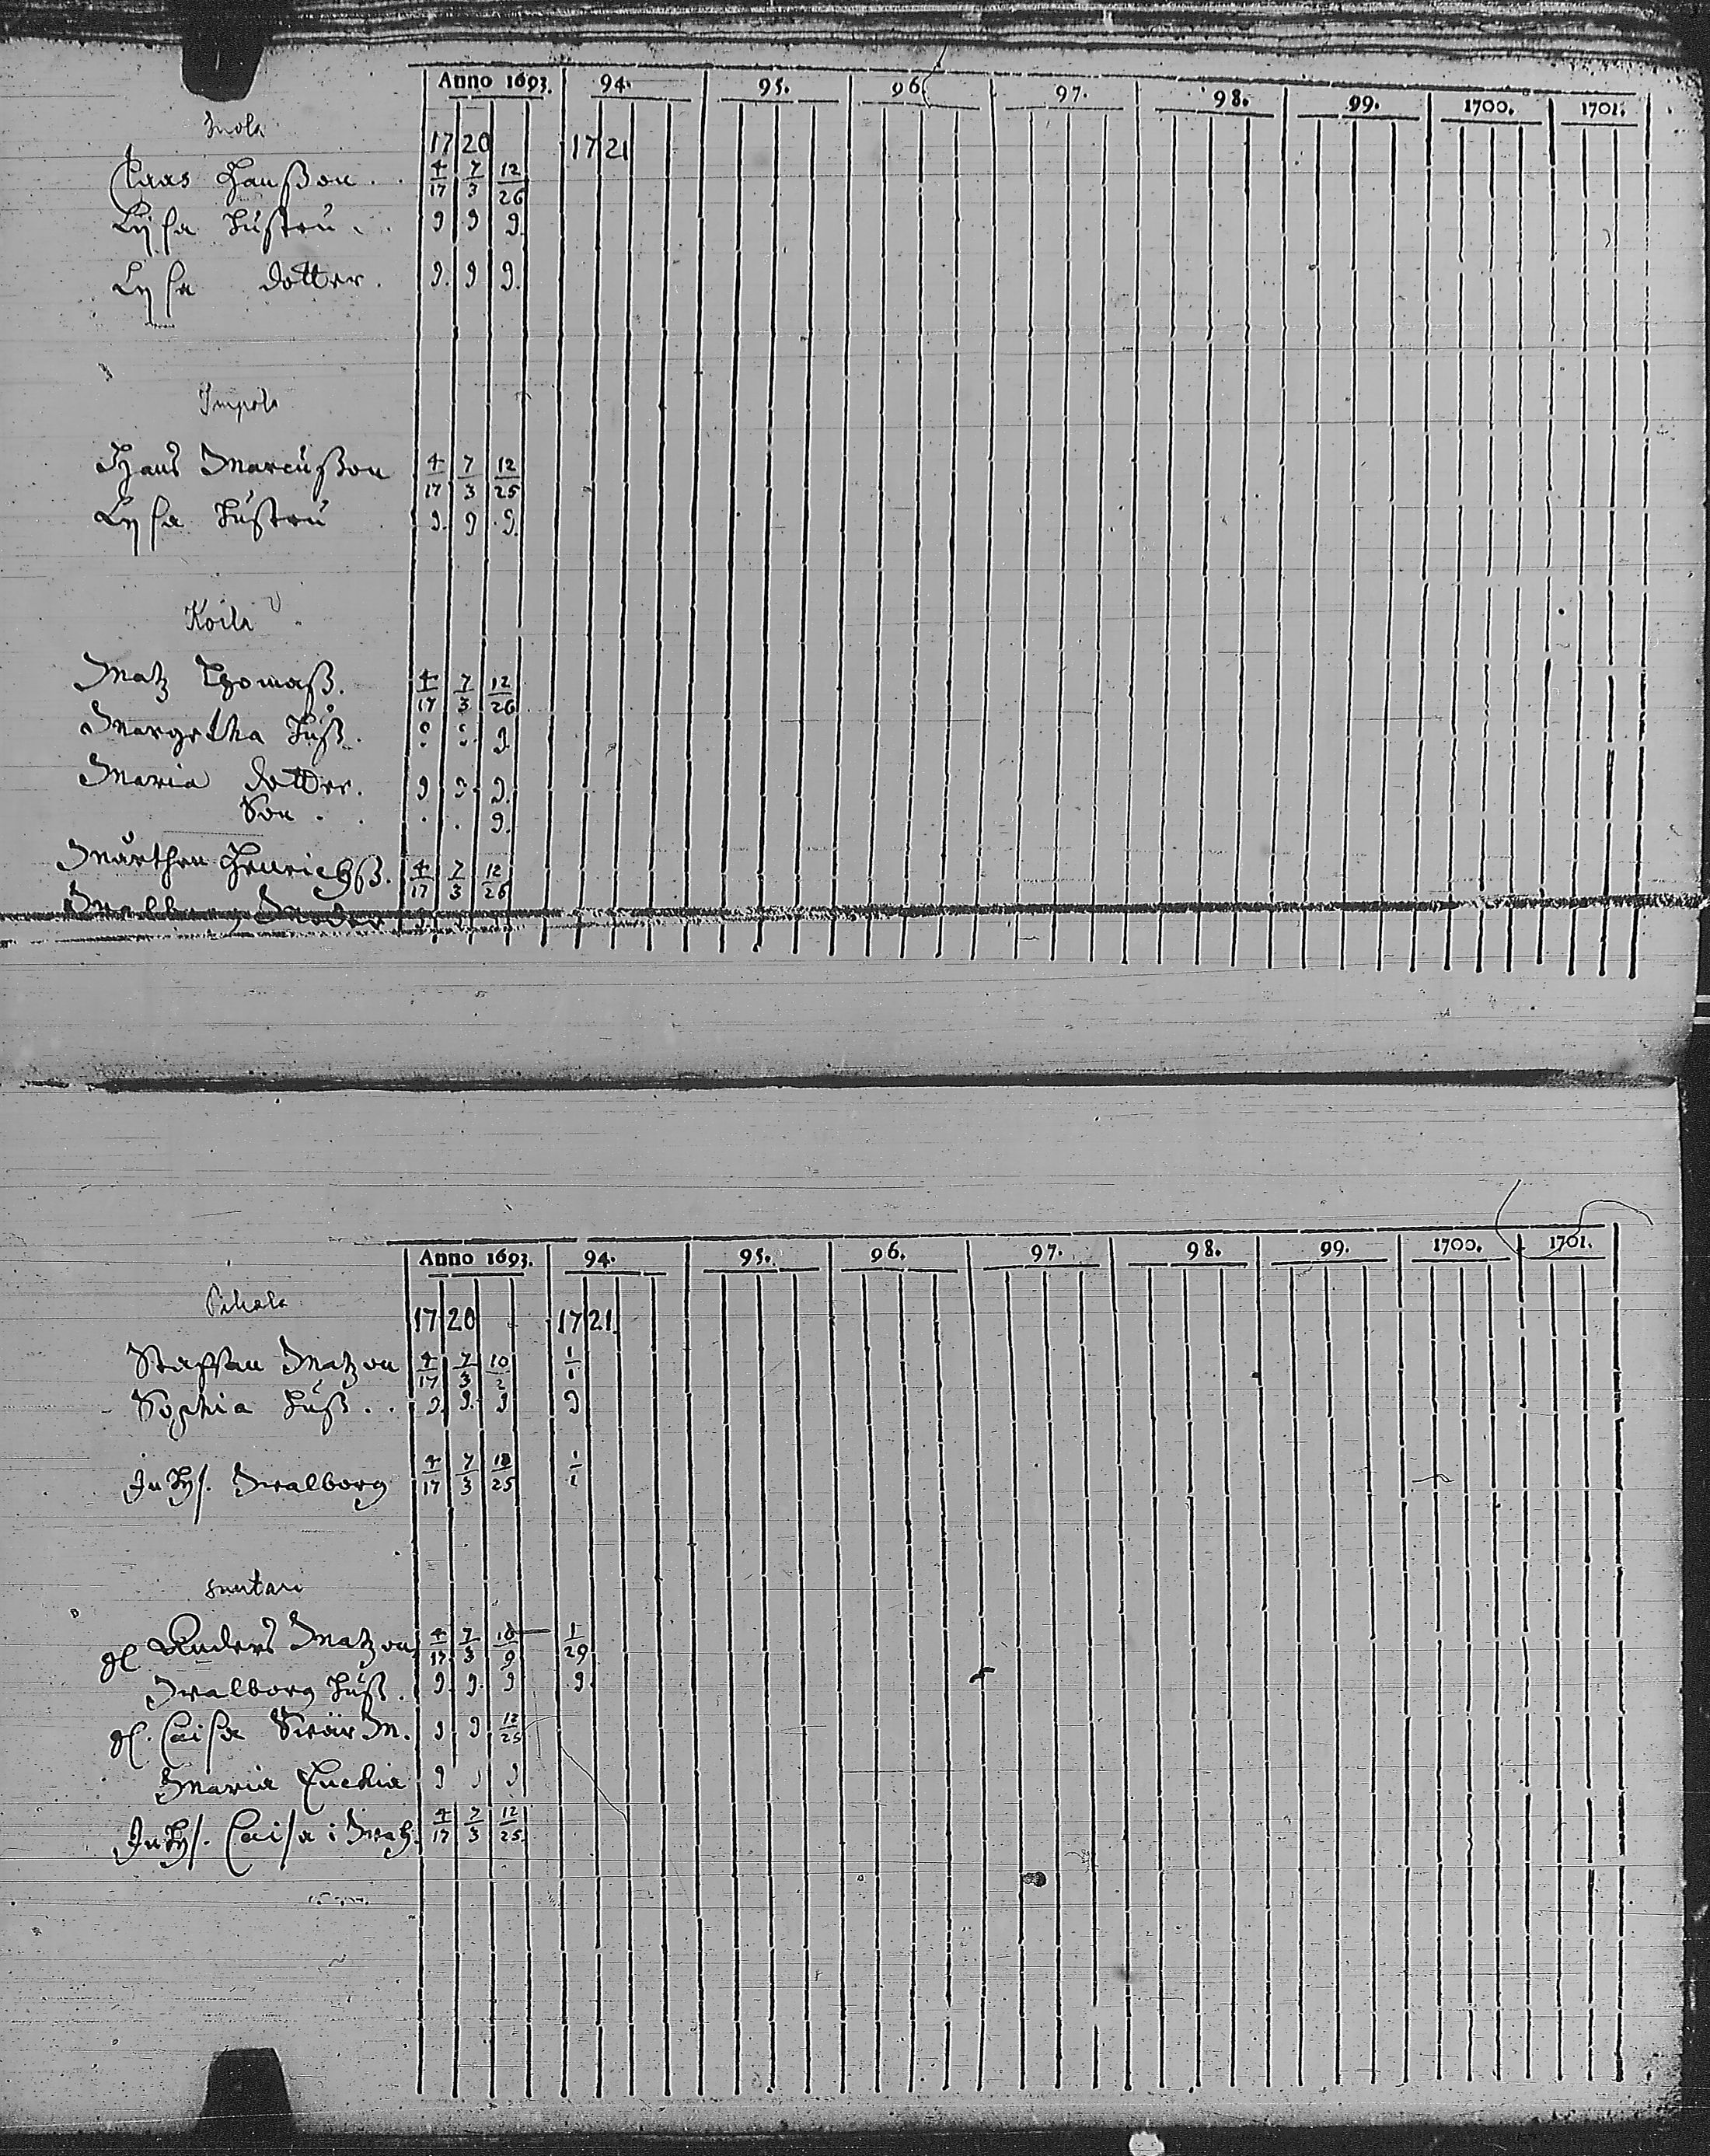 Anno 1693. 94. 95. 96. 97. 98. 99. 1700. 1701.
17 20 17 21
Claas Hanßon . . 4/17 7/3 12/26
Lijsa hustru . . 9 9 9.
Lijsa dotter . 9. 9 9.
Impola
Hans Marcußon 4/17 7/3 12/25
Lijsa hustru 9. 9 9.
Koila
Matz Thomaß. 4/17 7/3 12/26
Margetha huß. 9 9. 9
Maria dotter. 9 9 9.
Son . . . . 9.
Mårthen Henrichß. 4/17 7/3 12/26
Anno 1693. 94. 95. 96. 97. 98. 99. 1700. 1701.
17 20 17 21.
Staffan Matzon 4/17 7/3 10/2 1/1
Sophia huß . . 9. 9. 9 9
Inhys. Walborg 4/17 7/3 25 1/1
suutari
gl Anders Matzon 4/17 7/3 1/29
Walborg huß. 9. 9. 9 9.
gl. Caisa Swär M. 9 9 12/25
Maria Enckia 9 9 9
Inhys. Caisa i 4/17 7/3 12/25.